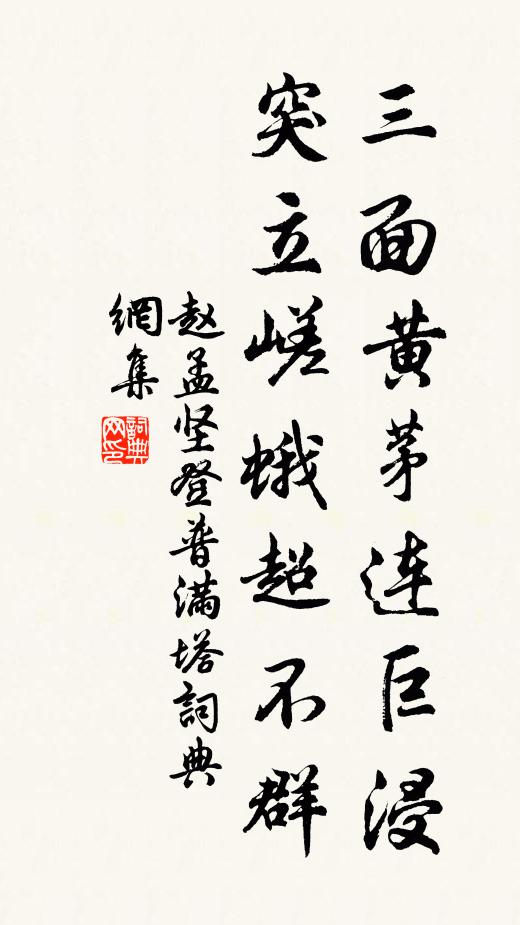 三面黄茅连巨浸
突立嵯蛾超不群
赵孟坚登普满塔詞典
網集
詞典
网印